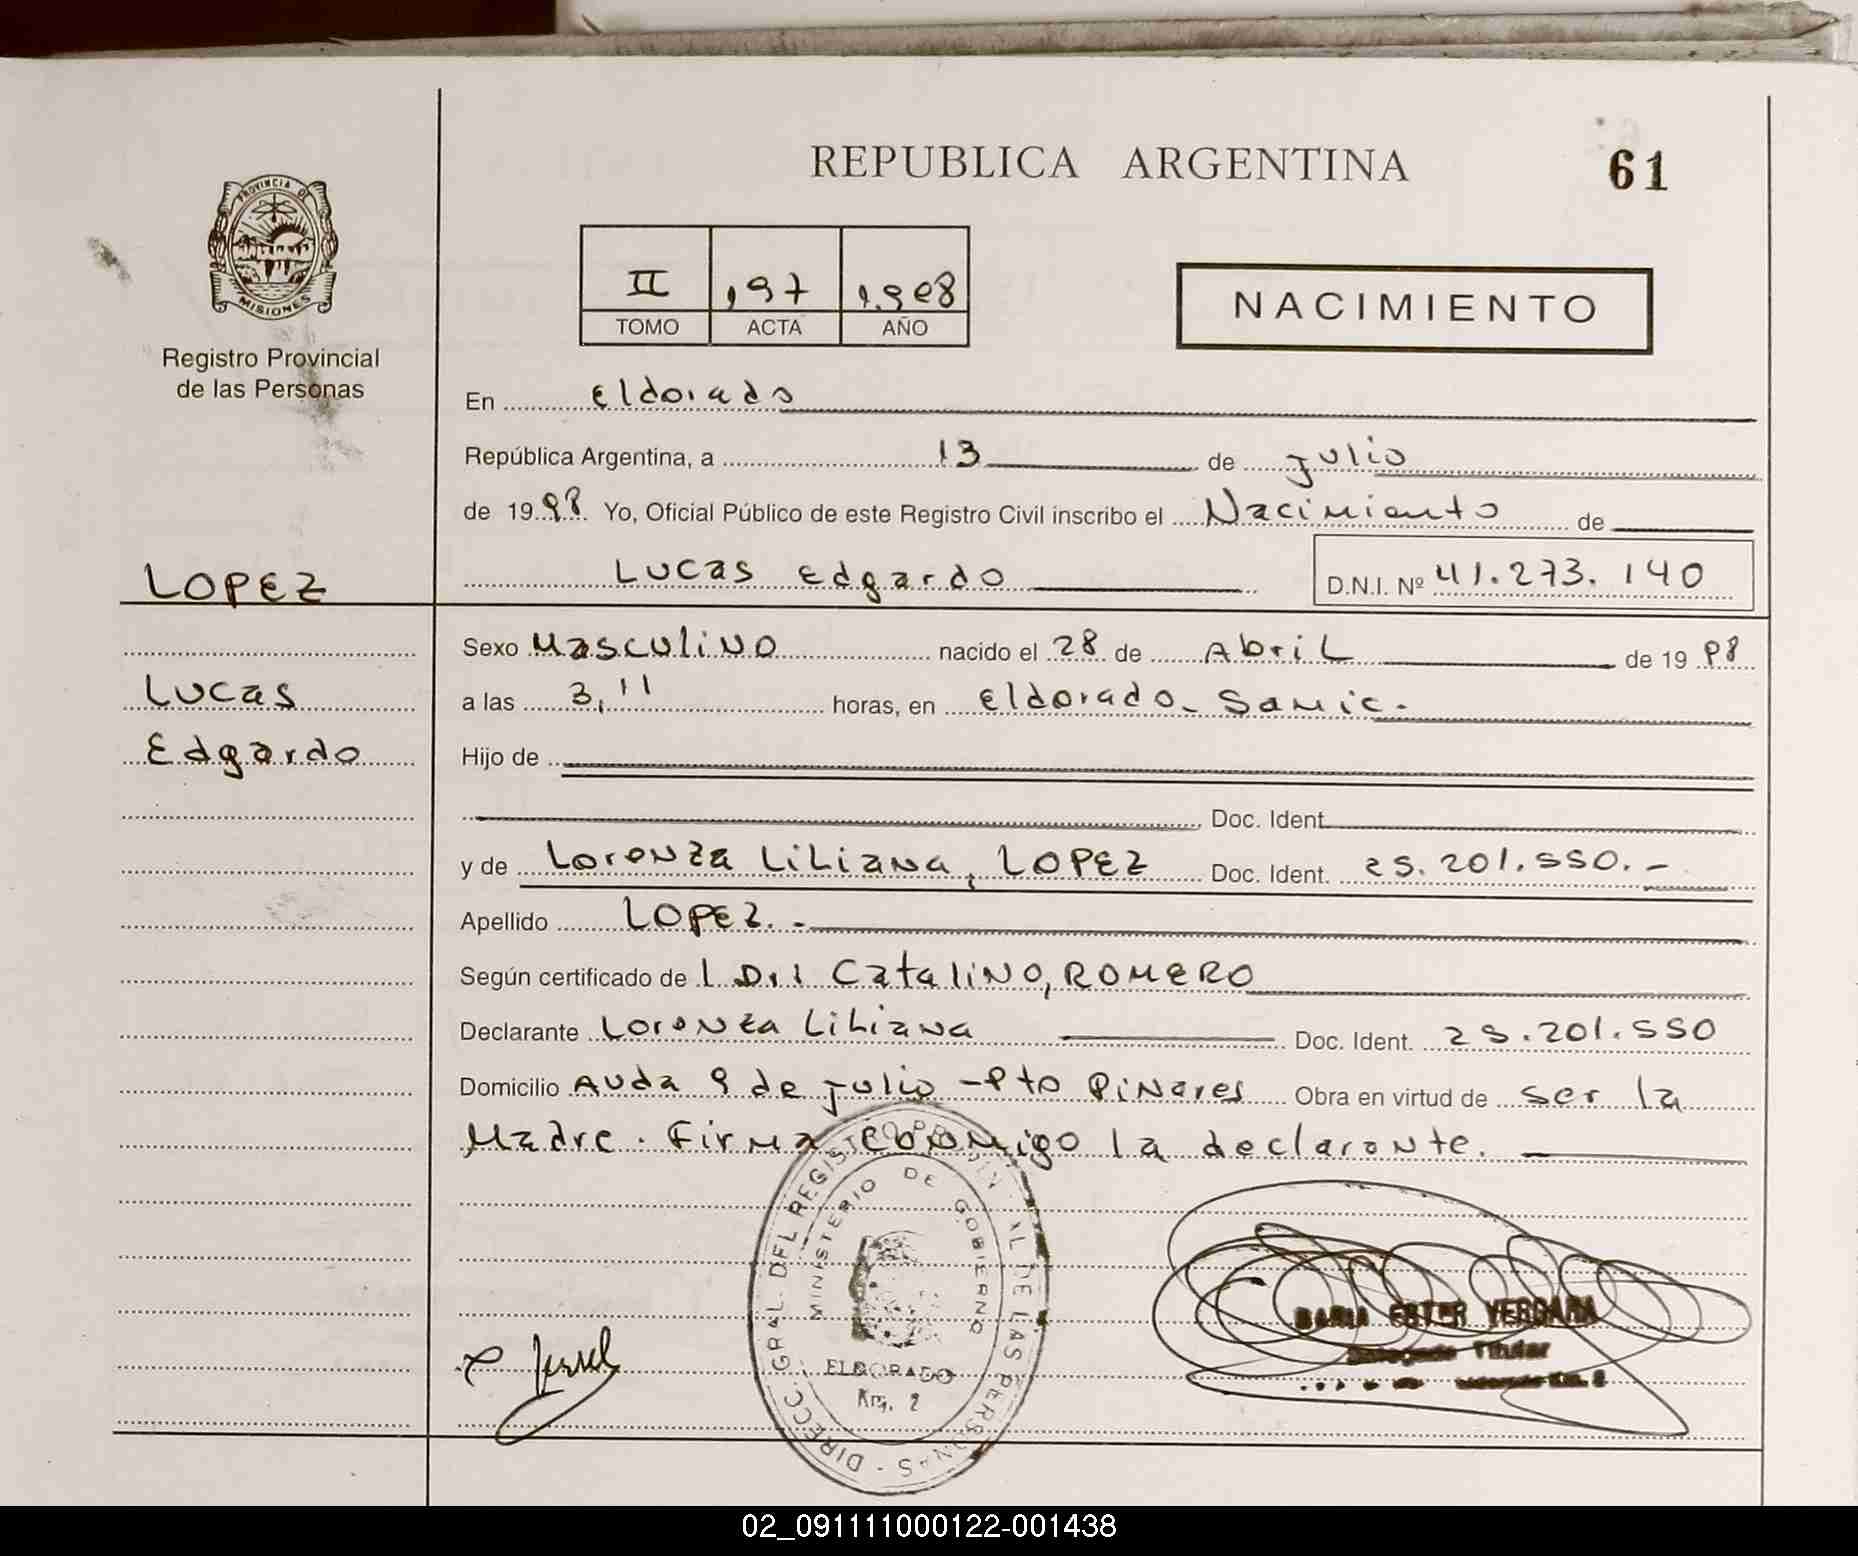 REPUBLICA ARGENTINA
61
PROVINCIA DE
MISIONES
Registro Provincial
de las Personas
II ,197 1.998
TOMO ACTA AÑO
NACIMIENTO
En Eldorado
República Argentina, a 13 de julio
de 1998 Yo, Oficial Público de este Registro Civil inscribo el Nacimiento de
LOPEZ
Lucas Edgardo D.N.I. Nº 41.273.140
Sexo Masculino nacido el 28 de Abril de 1998
Lucas
a las 3,11 horas, en Eldorado- Samic.
Edgardo
Hijo de
Doc. Ident.
y de Lorenza Liliana, LOPEZ Doc. Ident. 25.201.550.-
Apellido LOPEZ.-
Según certificado de Catalino, ROMERO
Declarante Lorenza Liliana Doc. Ident. 25.201.550
Domicilio Avda 9 de julio - Pto Pinares Obra en virtud de ser la
Madre. Firma conmigo la declarante.
DIRECC. GRAL. DEL REGISTRO PROVINCIAL DE LAS PERSONAS -
MINISTERIO DE GOBIERNO
ELDORADO
Km. 2
MARIA ESTER VERGARA
Delegada Titular
02_091111000122-001438